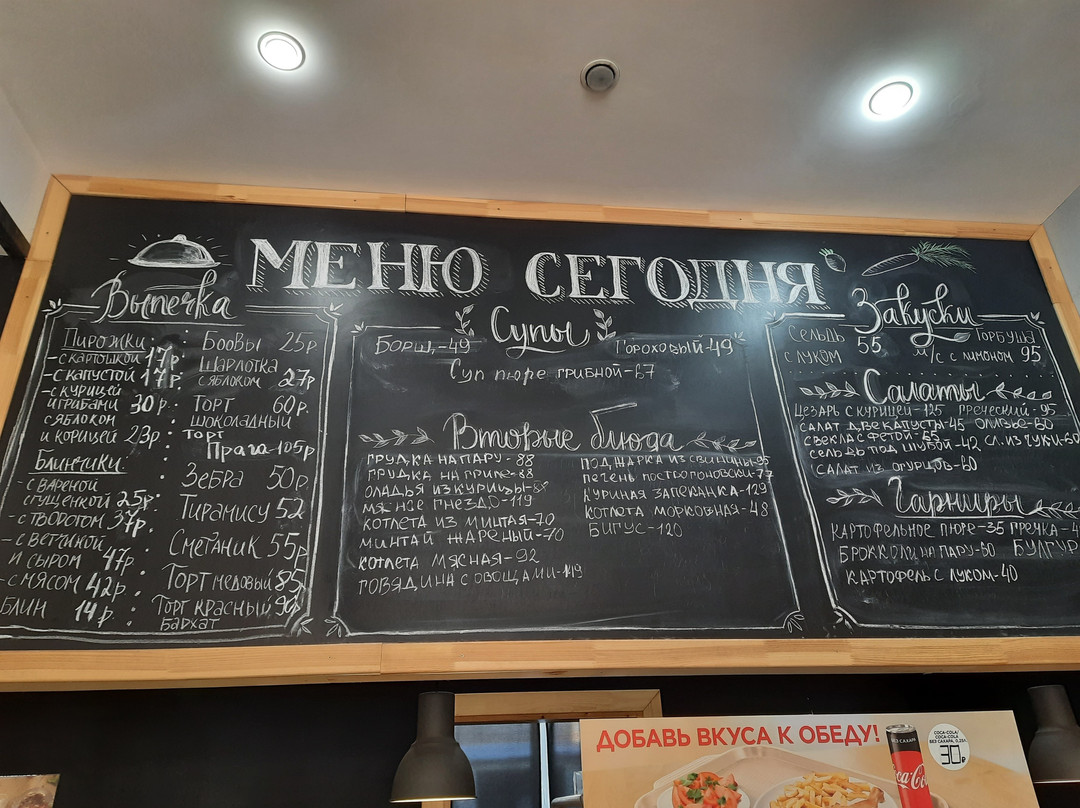 МЕНЮ СЕГОДНЯ
Выпечка
Пирожки:
- с картошкой 17р.
- с капустой 17р.
- с курицей
и грибами 30р.
с яблоком
и корицей 23р.
Блинчики:
- с вареной
сгущенкой 25р.
- с творогом 37р.
- с ветчиной
и сыром 47р.
- с мясом 42р.
Блин 14р.
Боовы 25р
Шарлотка
с яблоком 27р
Торт 60р.
шоколадный
Торт
Прага-105р
Зебра 50р.
Тирамису 52
Сметаник 55р
Торт медовый 85
Торт красный
бархат
Супы
Борщ,-49
Гороховый-49
Суп пюре грибной-67
Вторые блюда
Грудка на пару-88
Грудка на гриле-88
Оладья из курицы-
Мясное гнездо-119
Котлета из минтая-70
Минтай жареный-70
Котлета мясная-92
Говядина с овощами-119
Поджарка из свинины-95
Печень по строгоновски-77
Куриная запеканка-129
Котлета морковная-48
Бигус-120
Закуски
Сельдь
с луком 55
Горбуша
м/с с лимоном 95
Салаты
Цезарь с курицей-125 Греческий-95
Салат две капусты-45 Оливье-60
Свекла с фетой-55
Сельдь под шубой-42 Сл. из чуки-60
Салат из огурцов-60
Гарниры
Картофельное пюре-35 Гречка-
Брокколи на пару-60 Булгур
Картофель с луком-40
ДОБАВЬ ВКУСА К ОБЕДУ!
COCA-COLA/
COCA-COLA
БЕЗ САХАРА, 0,25л
30₽
БЕЗ САХАРА
Coca-Co